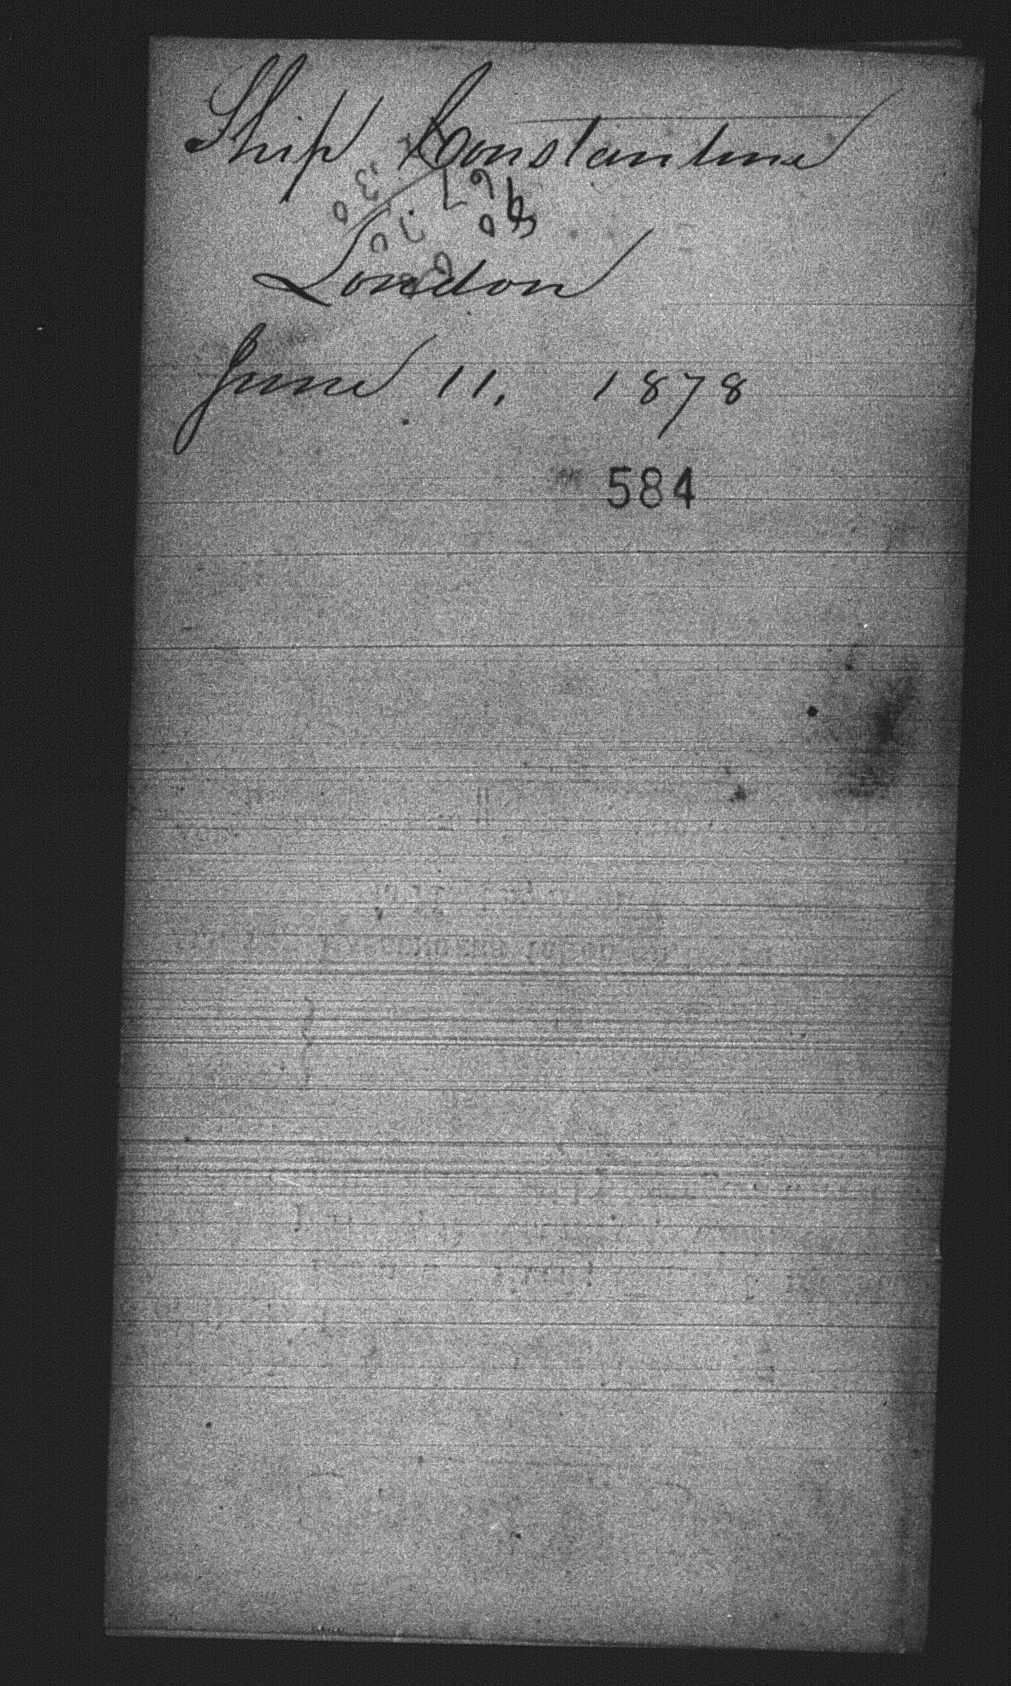 Ship Constantine
London
June 11, 1878
584